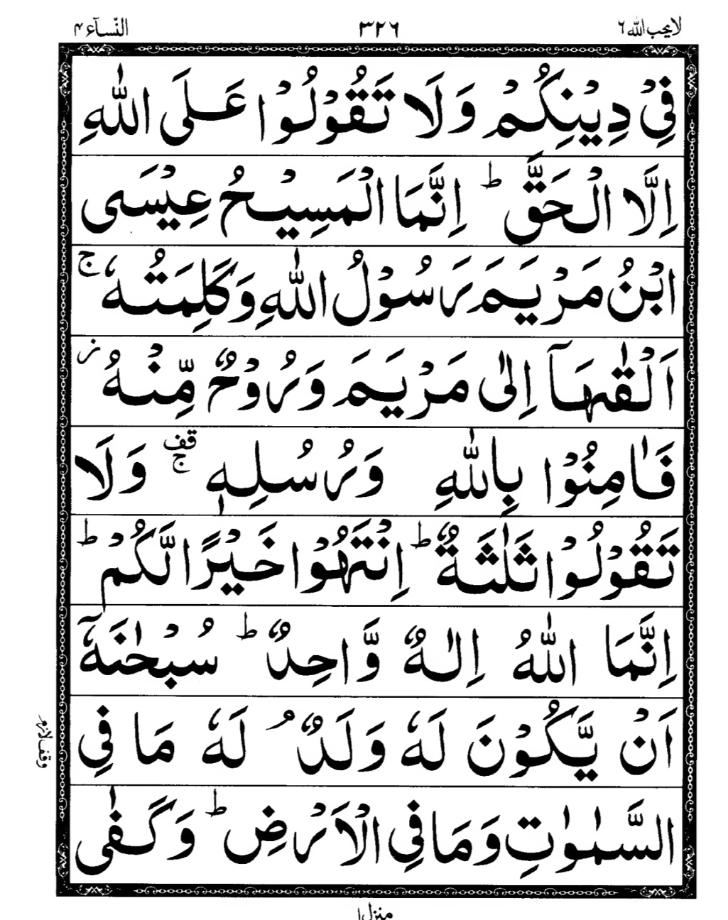 لایحب اللہ ٦ ٣٢٦ النّسآء ٤
فِیْ دِیْنِكُمْ وَلَا تَقُوْلُوْا عَلَی اللّٰهِ
اِلَّا الْحَقَّ ؕ اِنَّمَا الْمَسِیْحُ عِیْسَی
ابْنُ مَرْیَمَ رَسُوْلُ اللّٰهِ وَكَلِمَتُهٗ ۚ
اَلْقٰىهَاۤ اِلٰی مَرْیَمَ وَرُوْحٌ مِّنْهُ ؗ
فَاٰمِنُوْا بِاللّٰهِ وَرُسُلِهٖ ۚ قف وَلَا
تَقُوْلُوْا ثَلٰثَةٌ ؕ اِنْتَهُوْا خَیْرًا لَّكُمْ ؕ
اِنَّمَا اللّٰهُ اِلٰهٌ وَّاحِدٌ ؕ سُبْحٰنَهٗۤ
اَنْ یَّكُوْنَ لَهٗ وَلَدٌ ۘ لَهٗ مَا فِی
السَّمٰوٰتِ وَمَا فِی الْاَرْضِ ؕ وَكَفٰی
وقف لازم
منزل ١